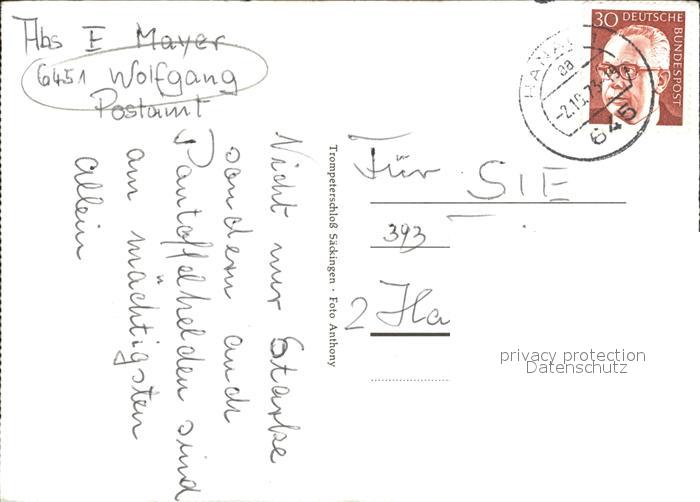 Abs E Mayer
6451 Wolfgang
Postamt
Nicht nur Starke
sondern auch
Pantoffelhelden sind
am mächtigsten
allein
Trompeterschloß Säckingen · Foto Anthony
30 DEUTSCHE
BUNDESPOST
HANAU
aa
645
Für SIE
393
2 Ha
privacy protection
Datenschutz